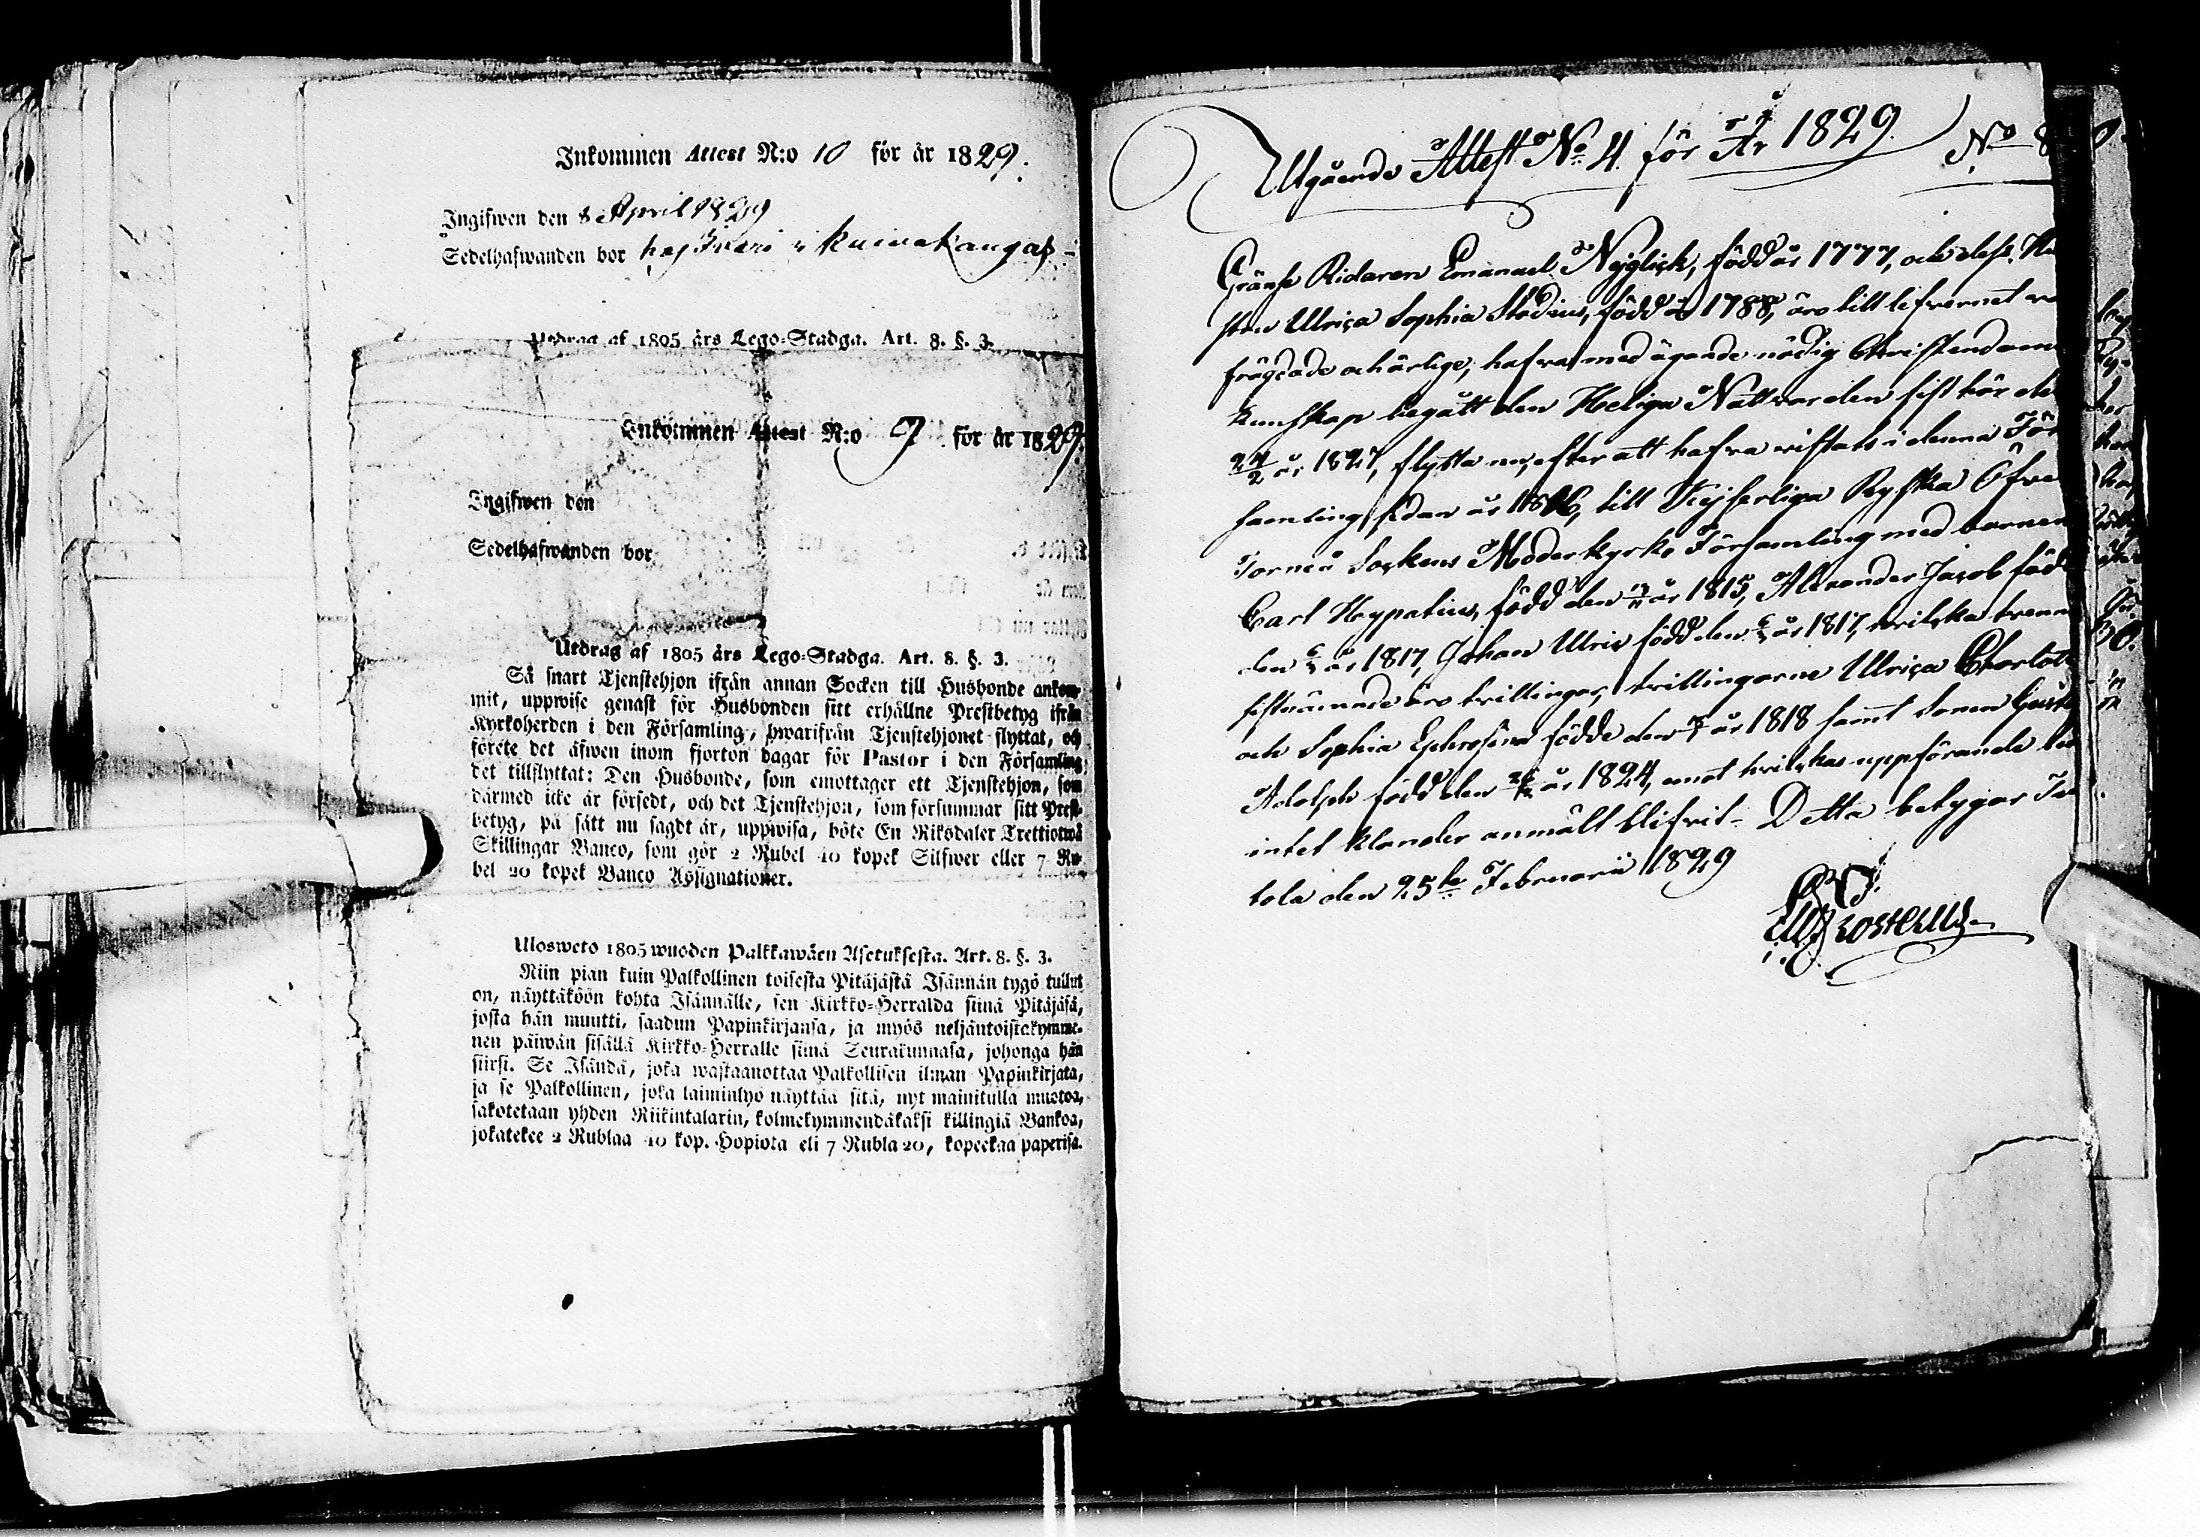 Inkommen Attest N:o 10 för år 1829.
Ingifwen den 8 April 1829
Sedelhafwanden bor hos Iisari i Kuivakangas
Utdrag af 1805 års Lego-Stadga. Art. 8. §. 3.
Inkommen Attest N:o 9 för år 1829.
Ingifwen den
Sedelhafwanden bor
Utdrag af 1805 års Lego-Stadga. Art. 8. §. 3.
Så snart Tjenstehjon ifrån annan Socken till Husbonde ankom-
mit, uppwise genast för Husbonden sitt erhållne Prestbetyg ifrån
Kyrkoherden i den Församling, hwarifrån Tjenstehjonet flyttat, och
förete det äfwen inom fjorton dagar för Pastor i den Församling
det tillflyttat: Den Husbonde, som emottager ett Tjenstehjon, som
därmed icke är försedt, och det Tjenstehjon, som försummar sitt Prest-
betyg, på sätt nu sagdt är, uppwisa, böte En Riksdaler Trettiotwå
Skillingar Banco, som gör 2 Rubel 40 kopek Silfwer eller 7 Ru-
bel 20 kopek Banco Assignationer.
Ulosweto 1805 wuoden Palkkawäen Asetuksesta. Art. 8. §. 3.
Niin pian kuin Palkollinen toisesta Pitäjästä Isännän tygö tullut
on, näyttäköön kohta Isännälle, sen Kirkko-Herralda siinä Pitäjäsä,
josta hän muutti, saadun Papinkirjansa, ja myös neljäntoistakymme-
nen päiwän sisällä Kirkko-Herralle siinä Seurakunnasa, johonga hän
siirsi. Se Isändä, joka wastaanottaa Palkollisen ilman Papinkirjata,
ja se Palkollinen, joka laiminlyö näyttää sitä, nyt mainitulla muotoa,
sakotetaan yhden Riikintalarin, kolmekymmendäkaksi killingiä Bankoa,
jokatekee 2 Rublaa 40 kop. Hopiota eli 7 Rubla 20, kopeekaa paperisa.
Utgående Attest No 4 för År 1829. No 8
Gränse Ridaren Emanuel Nejglick, född år 1777, och dess Hu
stru Ulrica Sophia Stadius, född år 1788, äro till lefvernet
frägdade och ärlige, hafva med ägande nödig Christendoms
kunskap begått den Heliga Nattvarden sist här den
24/2 år 1827, flytta nu, efter att hafva vistats i denna För
samling sedan år 1816, till Kejserliga Ryska Öfver
Torneå Sockens Moderkyrko Församling med barnen
Carl Hypatius, född den år 1815, Alexander Jacob född
den år 1817, Johan Ulric född den år 1817, hvilka tvenne
sistnämnde äro tvillingar, tvillingarne Ulrica Charlotta
och Sophia Ephrosina födde den år 1818 samt Sonen Gustaf
Adolph född den år 1824, emot hvilkas uppförande
intet klander anmält blifvit - Detta betygar
tola den 25te Februarii 1829